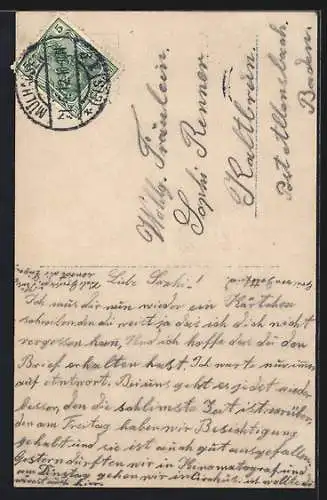 MÜLHAUSEN
(ELS)
5
Wohlg. Fräulein
Sophi Renner
Kaltbrun
Post Allensbach
Baden.
Liebe Sophi!
Ich mus dir nun wieder ein Kärtchen
schreiben den du weist ja das ich dich nicht
vergessen kann, Und ich hoffe das du den
Brief erhalten hast. Ich warte nur immer
auf Antwort. Bei uns geht es jedzt wieder
besser, den die schlimste Zeit ist vorüber,
den am Freitag haben wir Besichtigung
gehabt und sie ist auch gut ausgefallen,
Gestern dürften wir in Kinematograf und
am Dinstag gehen wir in Circhus